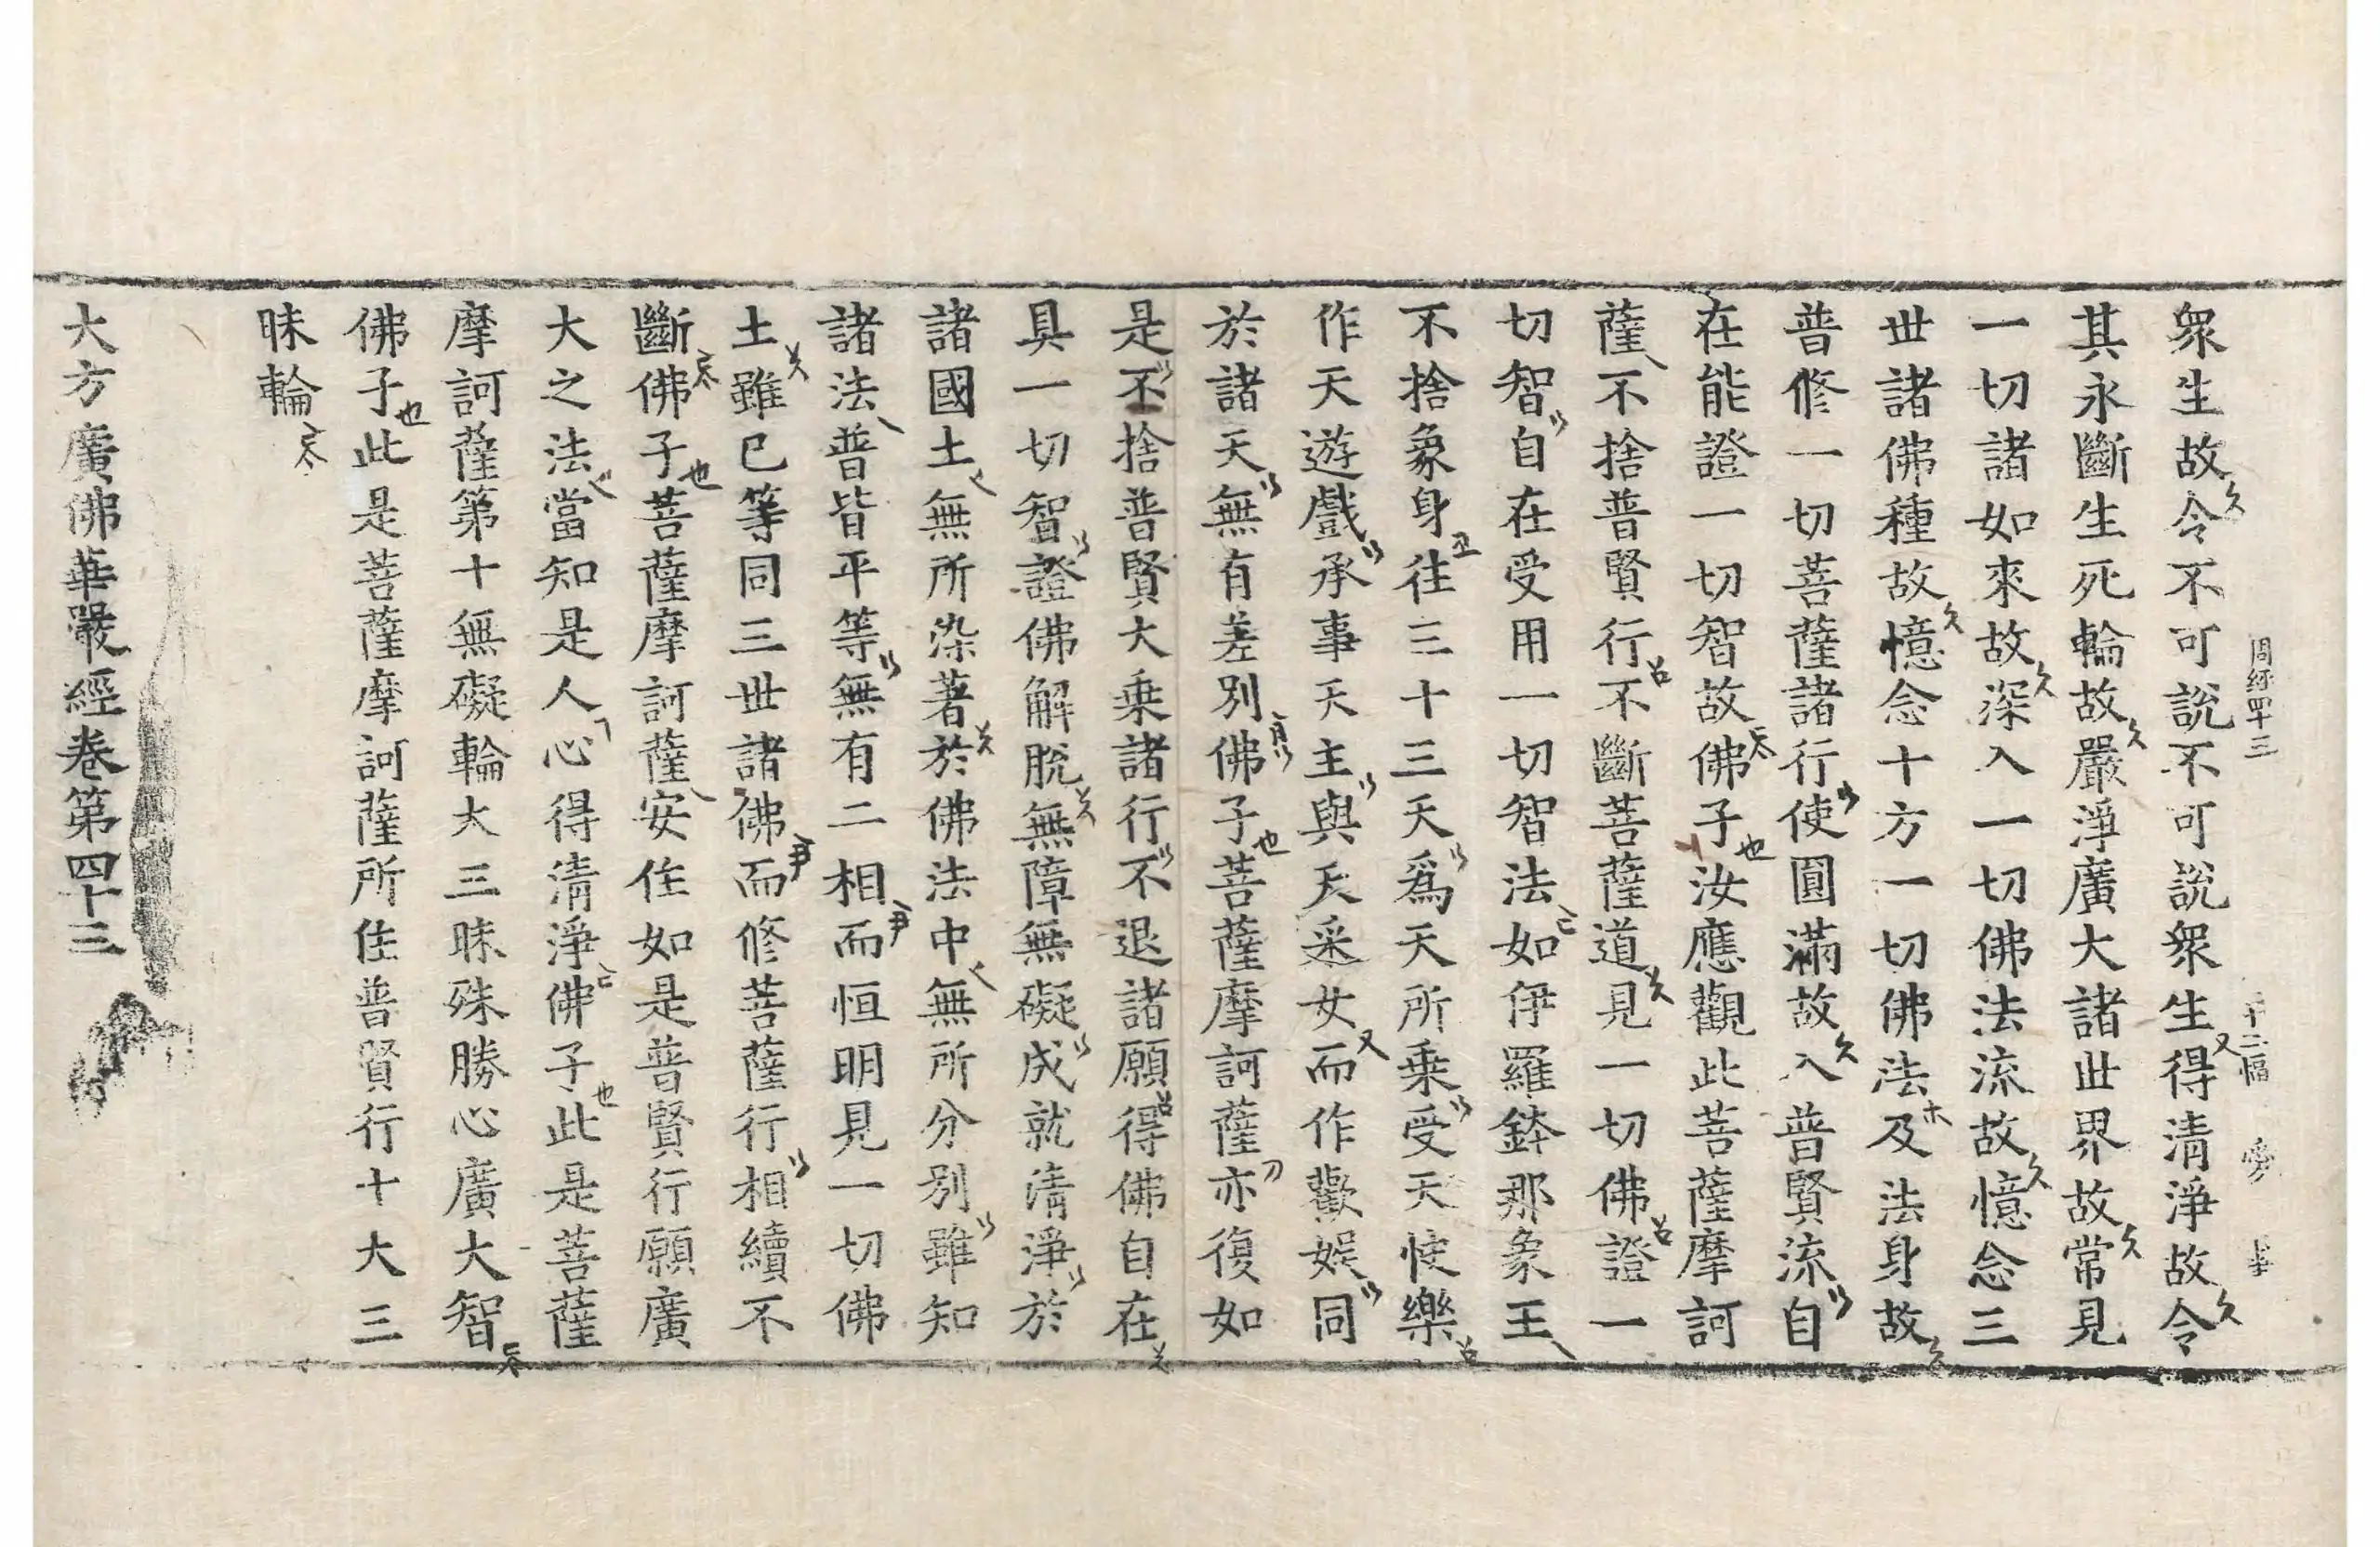 周經四十三 十三幅
眾生故令不可說不可說眾生得清淨故令
其永斷生死輪故嚴淨廣大諸世界故常見
一切諸如來故深入一切佛法流故憶念三
世諸佛種故憶念十方一切佛法及法身故
普修一切菩薩諸行使圓滿故入普賢流自
在能證一切智故佛子汝應觀此菩薩摩訶
薩不捨普賢行不斷菩薩道見一切佛證一
切智自在受用一切智法如伊羅鉢那象王
不捨象身往三十三天為天所乘受天快樂
作天遊戲承事天主與天采女而作歡娛同
於諸天無有差別佛子菩薩摩訶薩亦復如
是不捨普賢大乘諸行不退諸願得佛自在
具一切智證佛解脫無障無礙成就清淨於
諸國土無所染著於佛法中無所分別雖知
諸法普皆平等無有二相而恒明見一切佛
土雖已等同三世諸佛而修菩薩行相續不
斷佛子菩薩摩訶薩安住如是普賢行願廣
大之法當知是人心得清淨佛子此是菩薩
摩訶薩第十無礙輪大三昧殊勝心廣大智
佛子此是菩薩摩訶薩所住普賢行十大三
昧輪
大方廣佛華嚴經卷第四十三